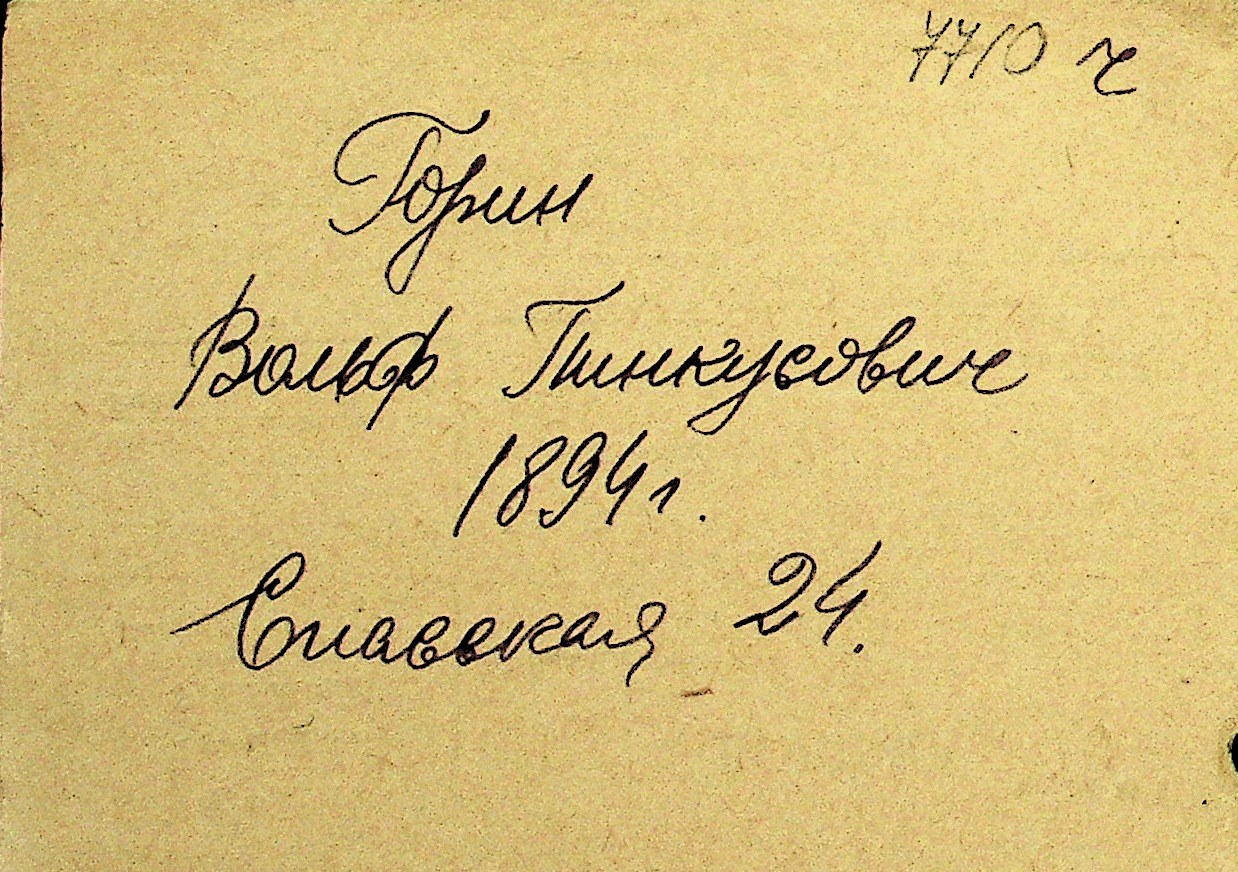 7710 ч
Горин
Вольф Пинкусович
1894 г.
Спасская 24.